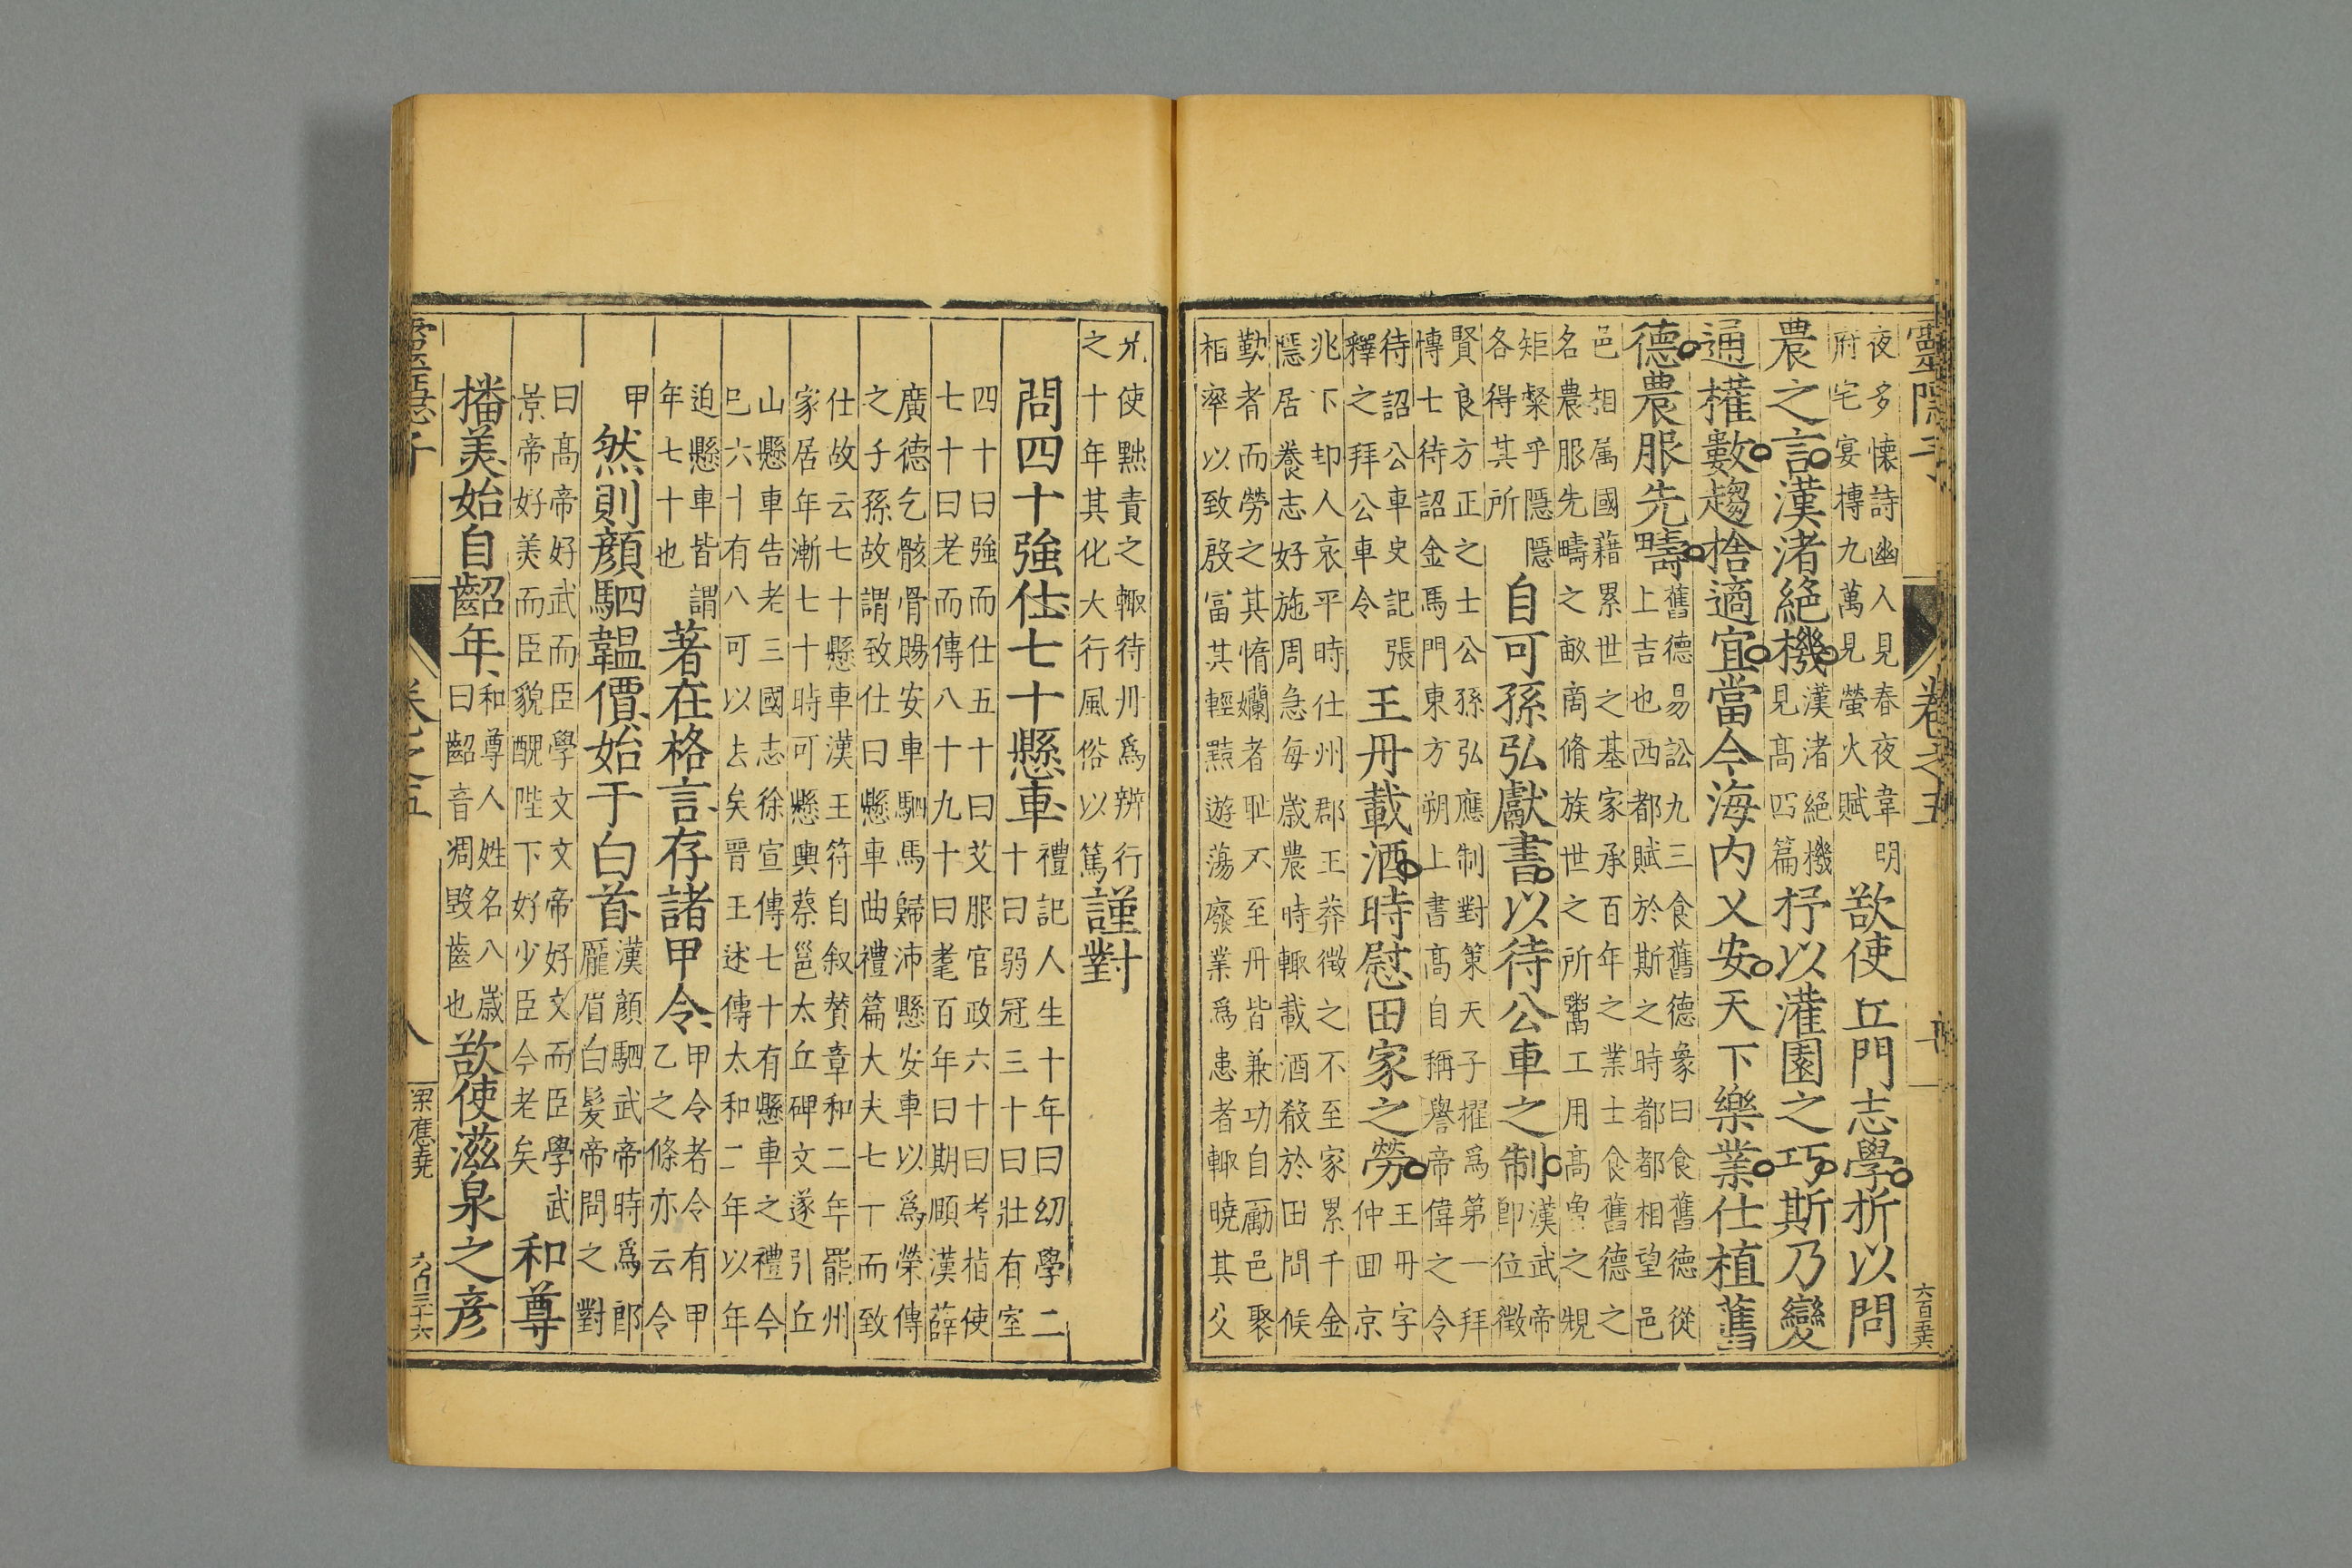 靈隱子
卷之五
六百五六
夜多懷詩幽人見春夜韋明
府宅宴榑九萬見螢火賦
欲使丘門志學折以問
農之言漢渚絕機
漢渚絕機
見高四篇
抒以灌園之巧斯乃變
通權數趨捨適宜當今海内乂安天下樂業仕植舊
德農服先疇
舊德易訟九三食舊德彖曰食舊德從
上吉也西都賦於斯之時都都相望邑
邑相属國藉累世之基家承百年之業士食舊德之
名農服先疇之畝啇脩族世之所鬻工用高曾之䂓
矩粲乎隱隱
各得其所
自可孫弘獻書以待公車之制
漢武帝
即位徵
賢良方正之士公孫弘應制對策天子擢爲第一拜
愽士待詔金馬門東方朔上書高自稱譽帝偉之令
待詔公車史記張
釋之拜公車令
王丹載酒時慰田家之勞
王丹字
仲回京
兆下邽人哀平時仕州郡王莽徵之不至家累千金
隱居養志好施周急每歲農時輒載酒殽於田間候
勤者而勞之其惰嬾者耻不至丹皆兼功自勵邑聚
相率以致殷富其輕黠遊蕩廢業爲患者輒曉其父
兄使黜責之輒待丹爲辨行
之十年其化大行風俗以篤
謹對
問四十強仕七十懸車
禮記人生十年曰幼學二
十曰弱冠三十曰壯有室
四十曰強而仕五十曰艾服官政六十曰耆指使
七十曰老而傳八十九十曰耄百年曰期頤漢薛
廣德乞骸骨賜安車駟馬歸沛懸安車以爲榮傳
之子孫故謂致仕曰懸車曲禮篇大夫七十而致
仕故云七十懸車漢王符自叙賛章和二年罷州
家居年漸七十時可懸輿蔡邕太丘碑文遂引丘
山懸車告老三國志徐宣傳七十有懸車之禮今
巳六十有八可以去矣晉王述傳太和二年以年
迫懸車皆謂
年七十也
著在格言存諸甲令
甲令者令有甲
乙之條亦云令
甲
然則顔駟韞價始于白首
漢顔駟武帝時爲郎
厖眉白髮帝問之對
曰高帝好武而臣學文文帝好文而臣學武
景帝好美而臣貌醜陛下好少臣今老矣
和尊
播美始自齠年
和尊人姓名八歲
曰齠音凋毀齒也
欲使滋泉之彥
靈隱子
卷之五
八
梁應堯
六百三十六